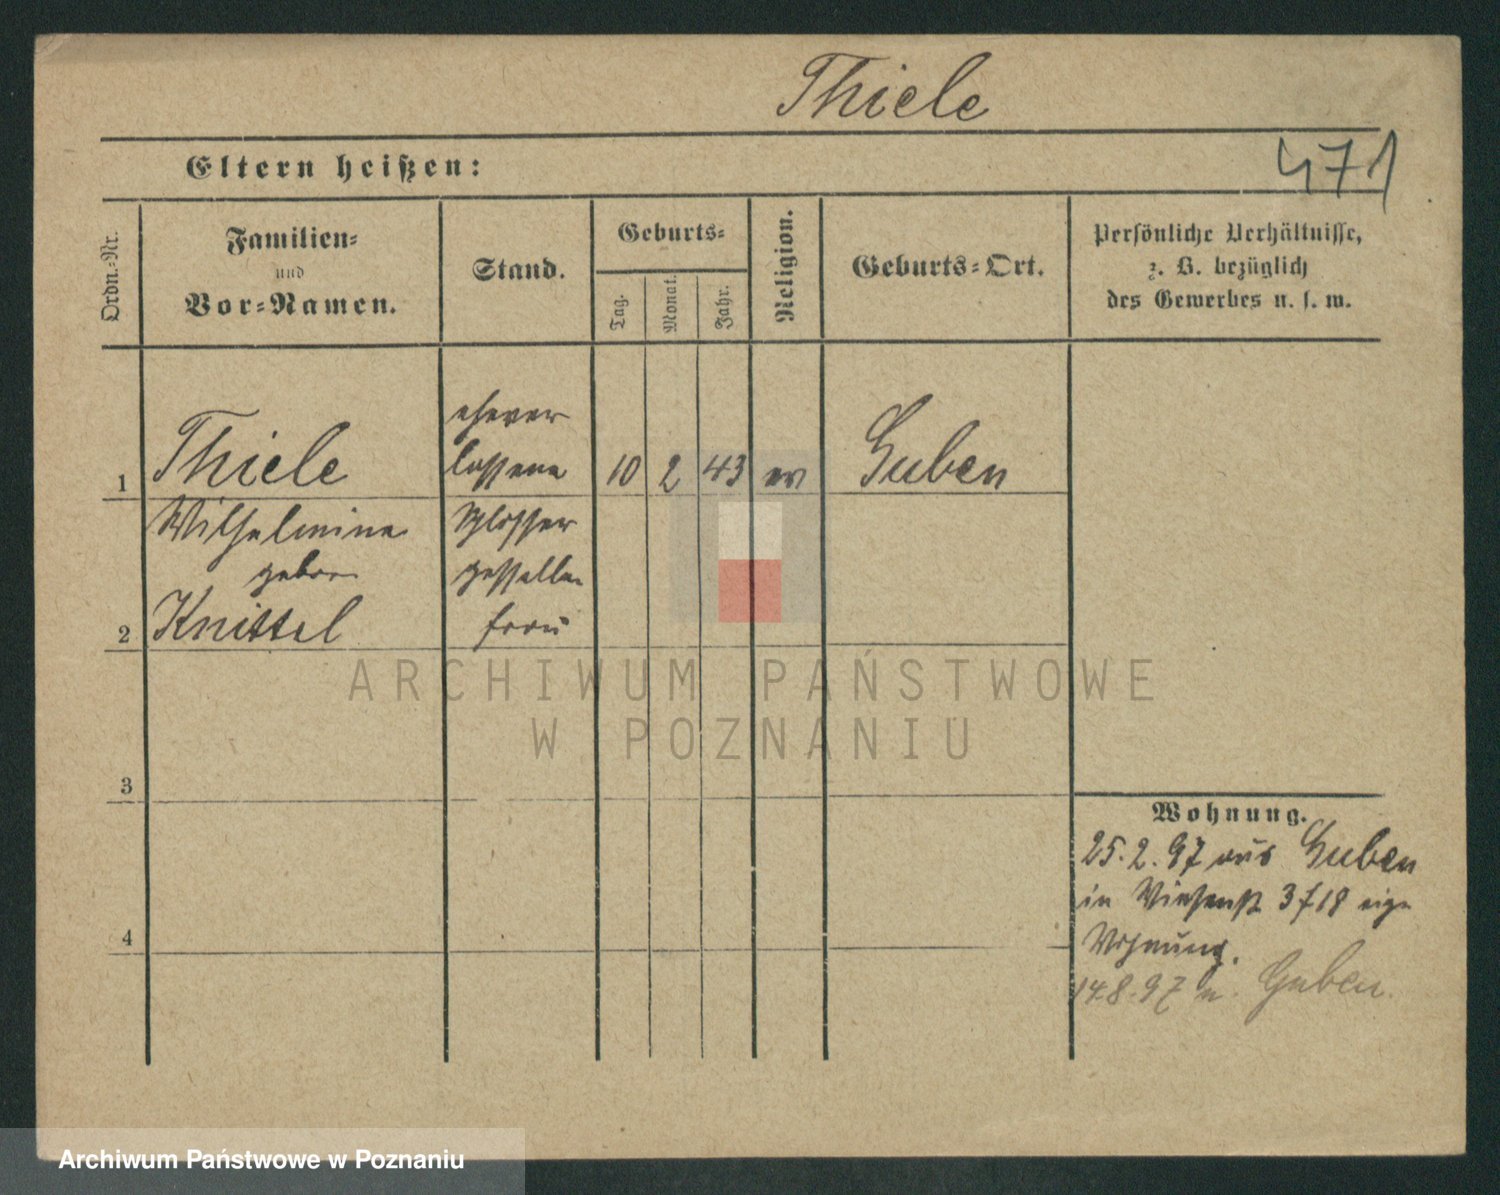 Thiele
471
Eltern heißen:
Ordn.-Nr.
Familien-
und
Vor-Namen.
Stand.
Geburts-
Tag.
Monat.
Jahr.
Religion.
Geburts-Ort.
Persönliche Verhältnisse,
z. B. bezüglich
des Gewerbes u. s. w.
1
Thiele
Wilhelmine
gebor
Knittel
ehever
lassene
Schlosser
gesellen
frau
10
2
43
ev
Guben
2
3
4
Wohnung.
25.2.97 aus Guben
in Wiesenst 3 f 18 eign
Wohnung.
14.8.97 n. Guben.
ARCHIWUM PAŃSTWOWE
W POZNANIU
Archiwum Państwowe w Poznaniu